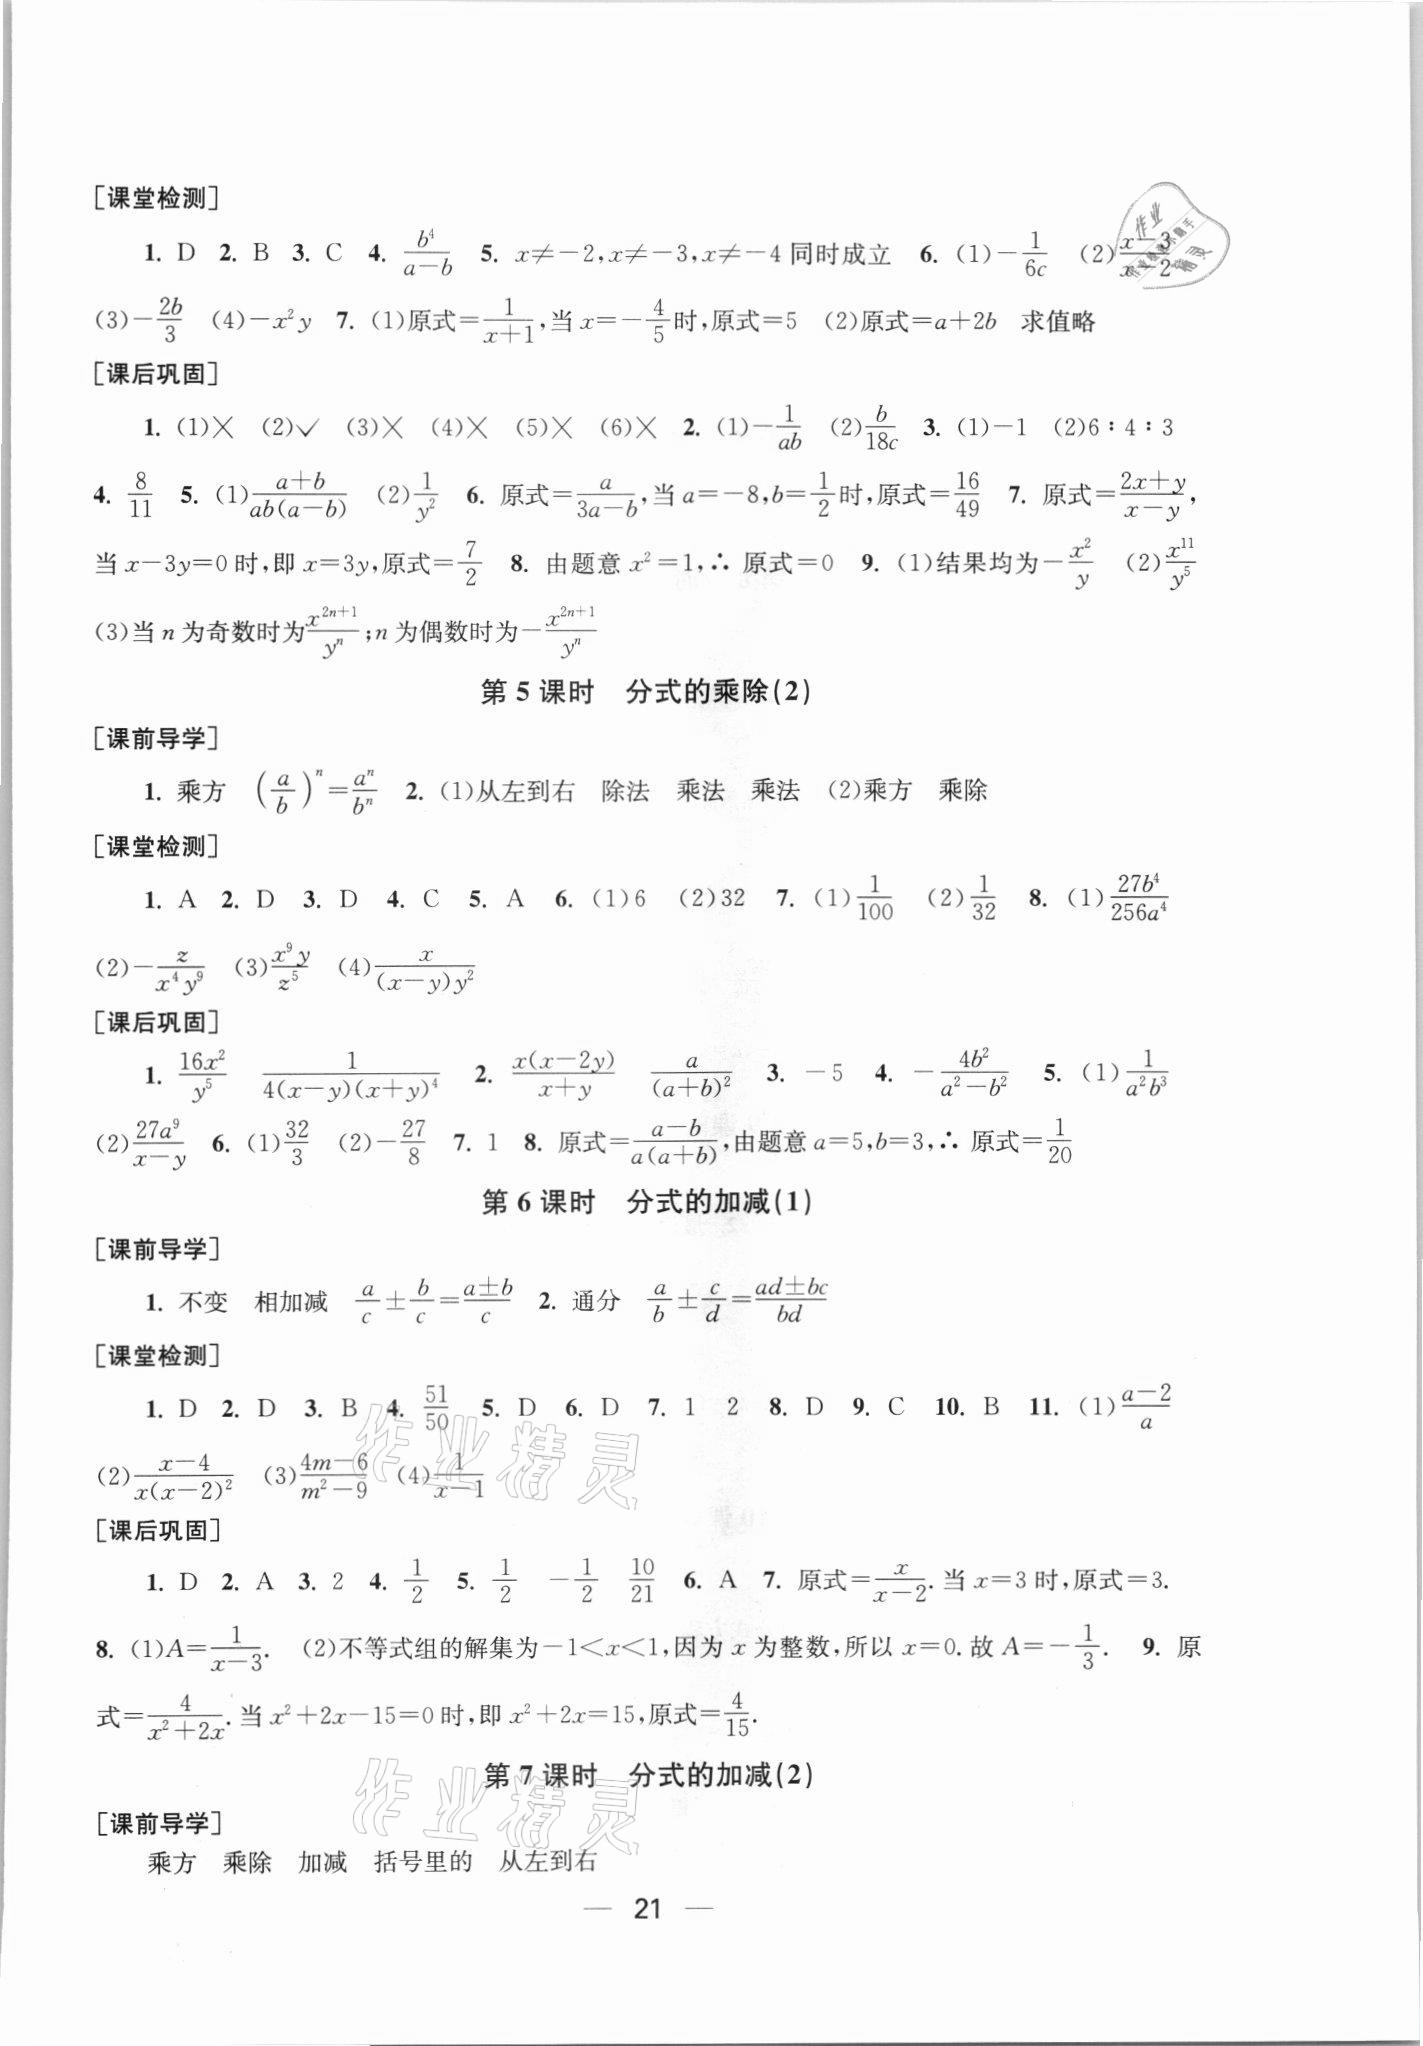 [课堂检测]
1. D 2. B 3. C 4. b⁴/(a-b) 5. x≠-2,x≠-3,x≠-4同时成立 6. (1)-1/(6c) (2)(x-3)/(x-2)
(3)-2b/3 (4)-x²y 7. (1)原式=1/(x+1),当x=-4/5时,原式=5 (2)原式=a+2b 求值略
[课后巩固]
1. (1)× (2)✓ (3)× (4)× (5)× (6)× 2. (1)-1/(ab) (2)b/(18c) 3. (1)-1 (2)6∶4∶3
4. 8/11 5. (1)(a+b)/(ab(a-b)) (2)1/y² 6. 原式=a/(3a-b),当a=-8,b=1/2时,原式=16/49 7. 原式=(2x+y)/(x-y),
当x-3y=0时,即x=3y,原式=7/2 8. 由题意x²=1,∴原式=0 9. (1)结果均为-x²/y (2)x¹¹/y⁵
(3)当n为奇数时为x²ⁿ⁺¹/yⁿ;n为偶数时为-x²ⁿ⁺¹/yⁿ
第5课时 分式的乘除(2)
[课前导学]
1. 乘方 (a/b)ⁿ=aⁿ/bⁿ 2. (1)从左到右 除法 乘法 乘法 (2)乘方 乘除
[课堂检测]
1. A 2. D 3. D 4. C 5. A 6. (1)6 (2)32 7. (1)1/100 (2)1/32 8. (1)27b⁴/(256a⁴)
(2)-z/(x⁴y⁹) (3)x⁹y/z⁵ (4)x/((x-y)y²)
[课后巩固]
1. 16x²/y⁵ 1/(4(x-y)(x+y)⁴) 2. x(x-2y)/(x+y) a/(a+b)² 3. -5 4. -4b²/(a²-b²) 5. (1)1/(a²b³)
(2)27a⁹/(x-y) 6. (1)32/3 (2)-27/8 7. 1 8. 原式=(a-b)/(a(a+b)),由题意a=5,b=3,∴原式=1/20
第6课时 分式的加减(1)
[课前导学]
1. 不变 相加减 a/c±b/c=(a±b)/c 2. 通分 a/b±c/d=(ad±bc)/(bd)
[课堂检测]
1. D 2. D 3. B 4. 51/50 5. D 6. D 7. 1 2 8. D 9. C 10. B 11. (1)(a-2)/a
(2)(x-4)/(x(x-2)²) (3)(4m-6)/(m²-9) (4)1/(x-1)
[课后巩固]
1. D 2. A 3. 2 4. 1/2 5. 1/2 -1/2 10/21 6. A 7. 原式=x/(x-2).当x=3时,原式=3.
8. (1)A=1/(x-3). (2)不等式组的解集为-1<x<1,因为x为整数,所以x=0.故A=-1/3. 9. 原
式=4/(x²+2x).当x²+2x-15=0时,即x²+2x=15,原式=4/15.
第7课时 分式的加减(2)
[课前导学]
乘方 乘除 加减 括号里的 从左到右
— 21 —
作业精灵
作业精灵
作业
精灵